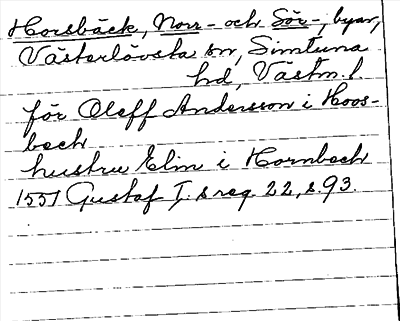 Horsbäck, Norr- och Sör-, byar,
Västerlövsta sn, Simtuna
hd, Västm. l
för Oleff Andersson i Hoos-
bech
hustru Elin i Hornbech
1551 Gustaf I:s reg 22, s. 93.